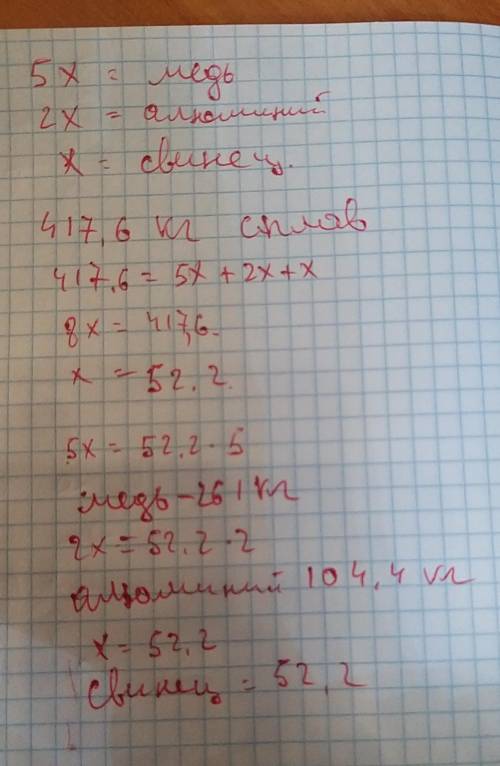 5x = медь
2x = алюминий
x = свинец.
417,6 кг сплав
417,6 = 5x + 2x + x
8x = 417,6.
x = 52,2.
5x = 52,2 · 5
медь - 261 кг
2x = 52,2 · 2
алюминий 104,4 кг
x = 52,2
свинец = 52,2